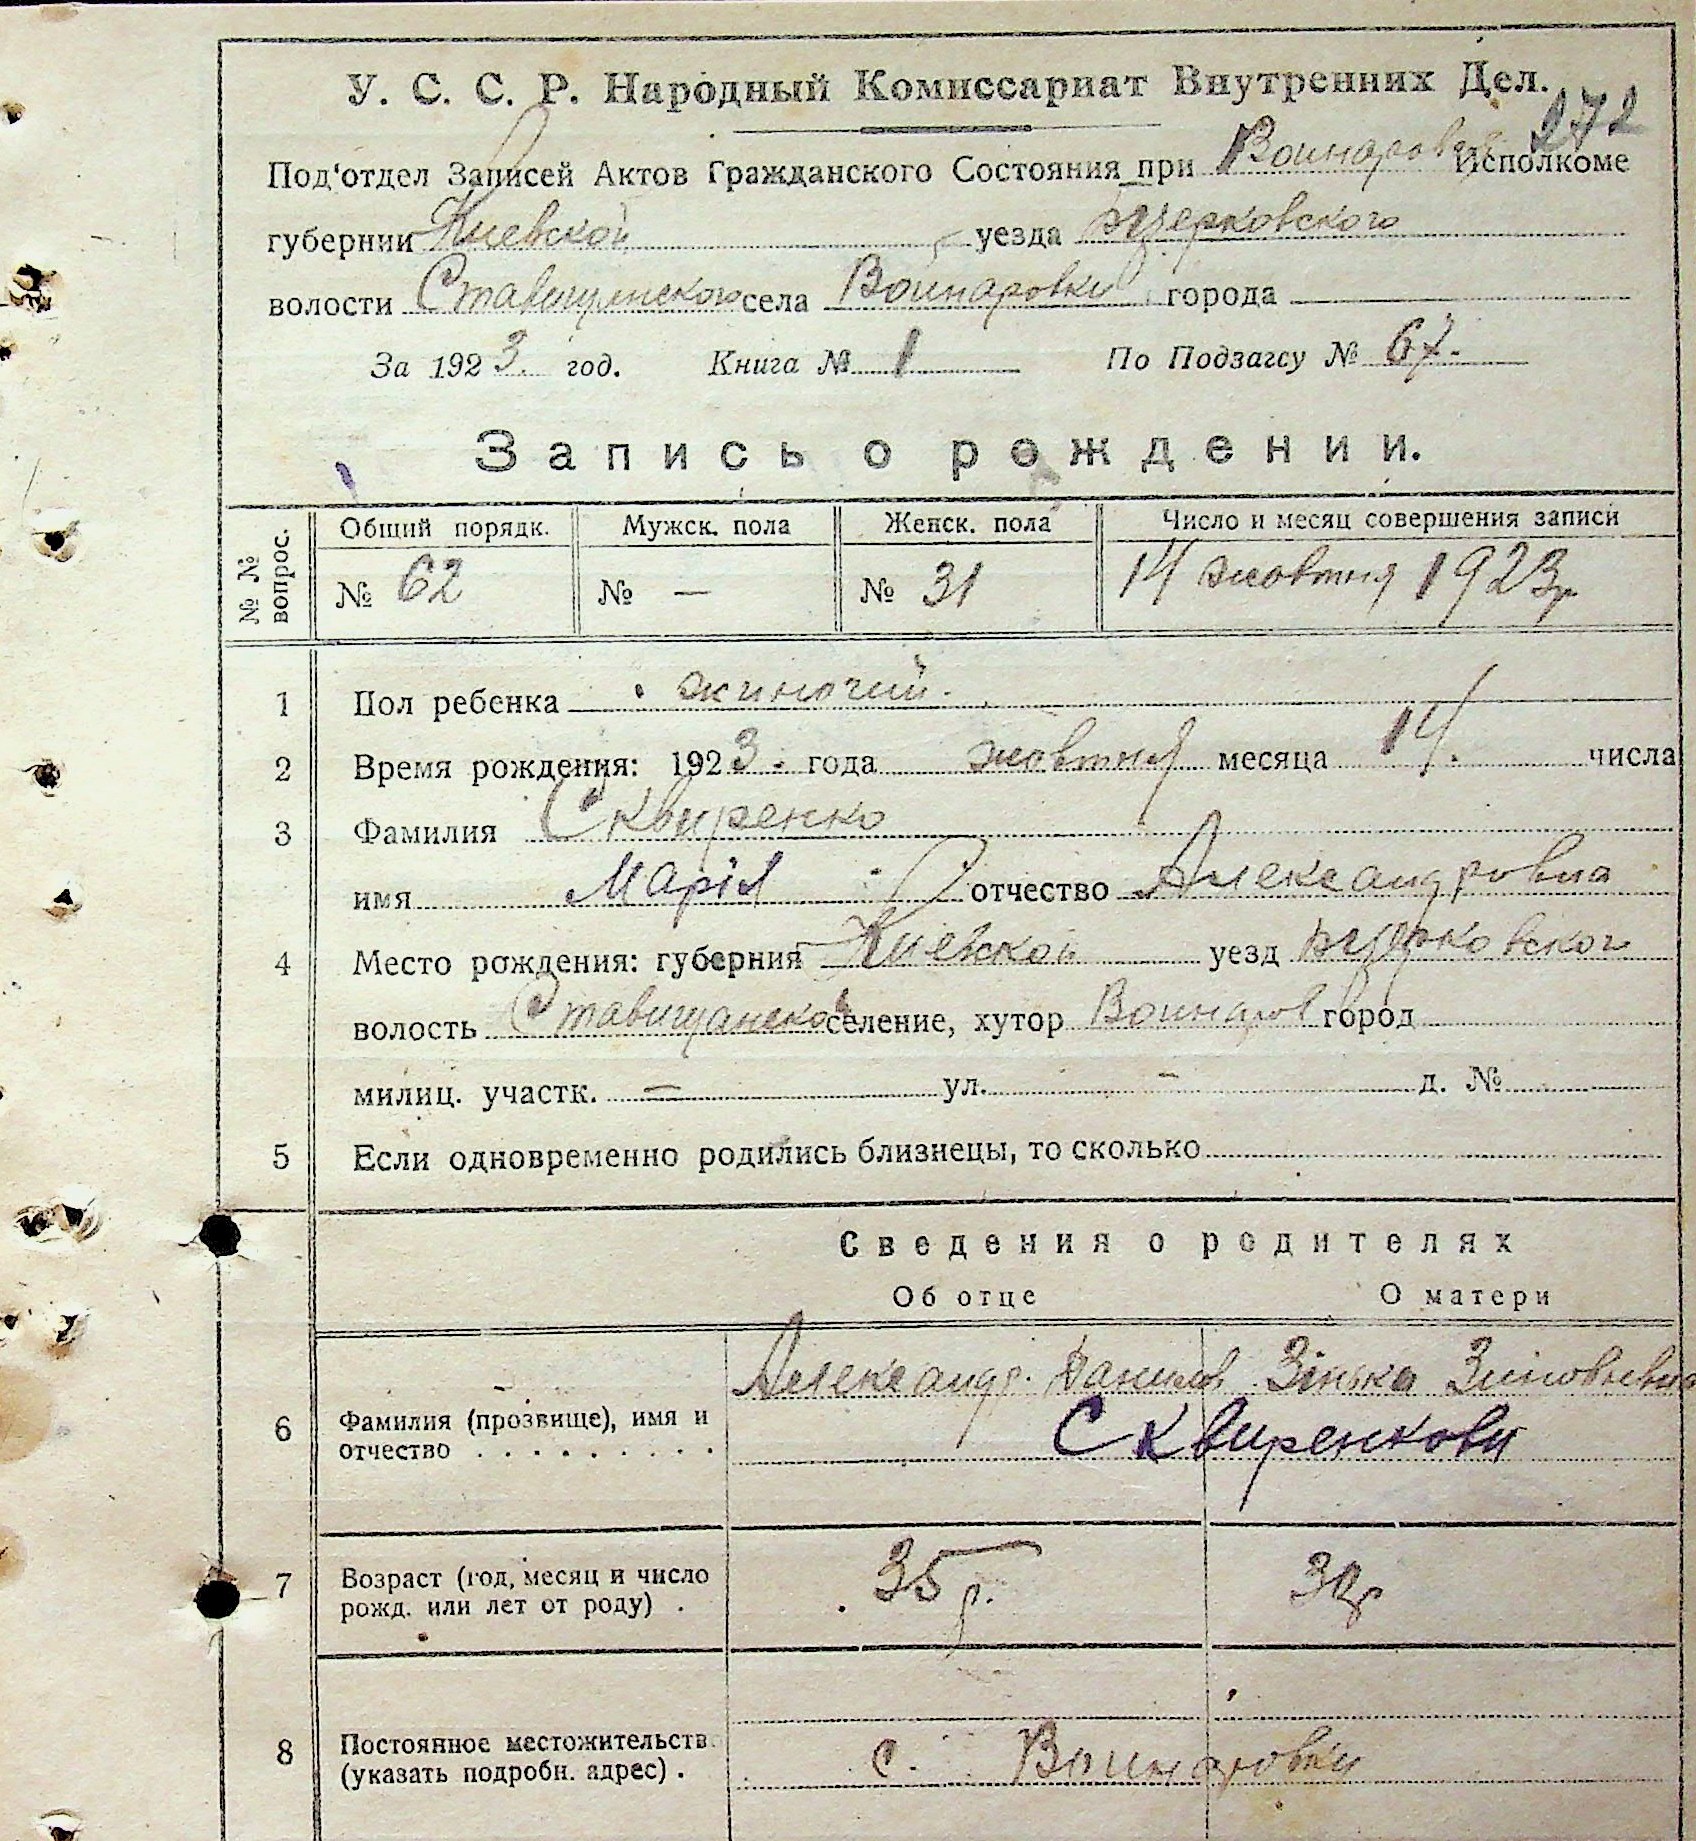 У. С. С. Р. Народный Комиссариат Внутренних Дел.
272
Под'отдел Записей Актов Гражданского Состояния при Воинаровск Исполкоме
губернии Киевской уезда Бцерковского
волости села Воинаровки города
За 1923. год. Книга № 1 По Подзагсу № 67.
Запись о рождении.
№ № вопрос. Общий порядк. Мужск. пола Женск. пола Число и месяц совершения записи
№ 62 № — № 31 14 жовтня 1923р
1 Пол ребенка жиночий.
2 Время рождения: 1923. года жовтня месяца 14. числа
3 Фамилия Сквиренко
имя Марія отчество Александровна
4 Место рождения: губерния Киевской уезд Бцерковског
волость Ставищанско селение, хутор Воинаров город
милиц. участк. — ул. - д. №
5 Если одновременно родились близнецы, то сколько
Сведения о родителях
Об отце О матери
6 Фамилия (прозвище), имя и отчество Александр. Данилов Зінька Зиновьевна
Сквиренкови
7 Возраст (год, месяц и число рожд. или лет от роду) . 35 р. 30р
8 Постоянное местожительств (указать подробн. адрес) . с. Воинаровки